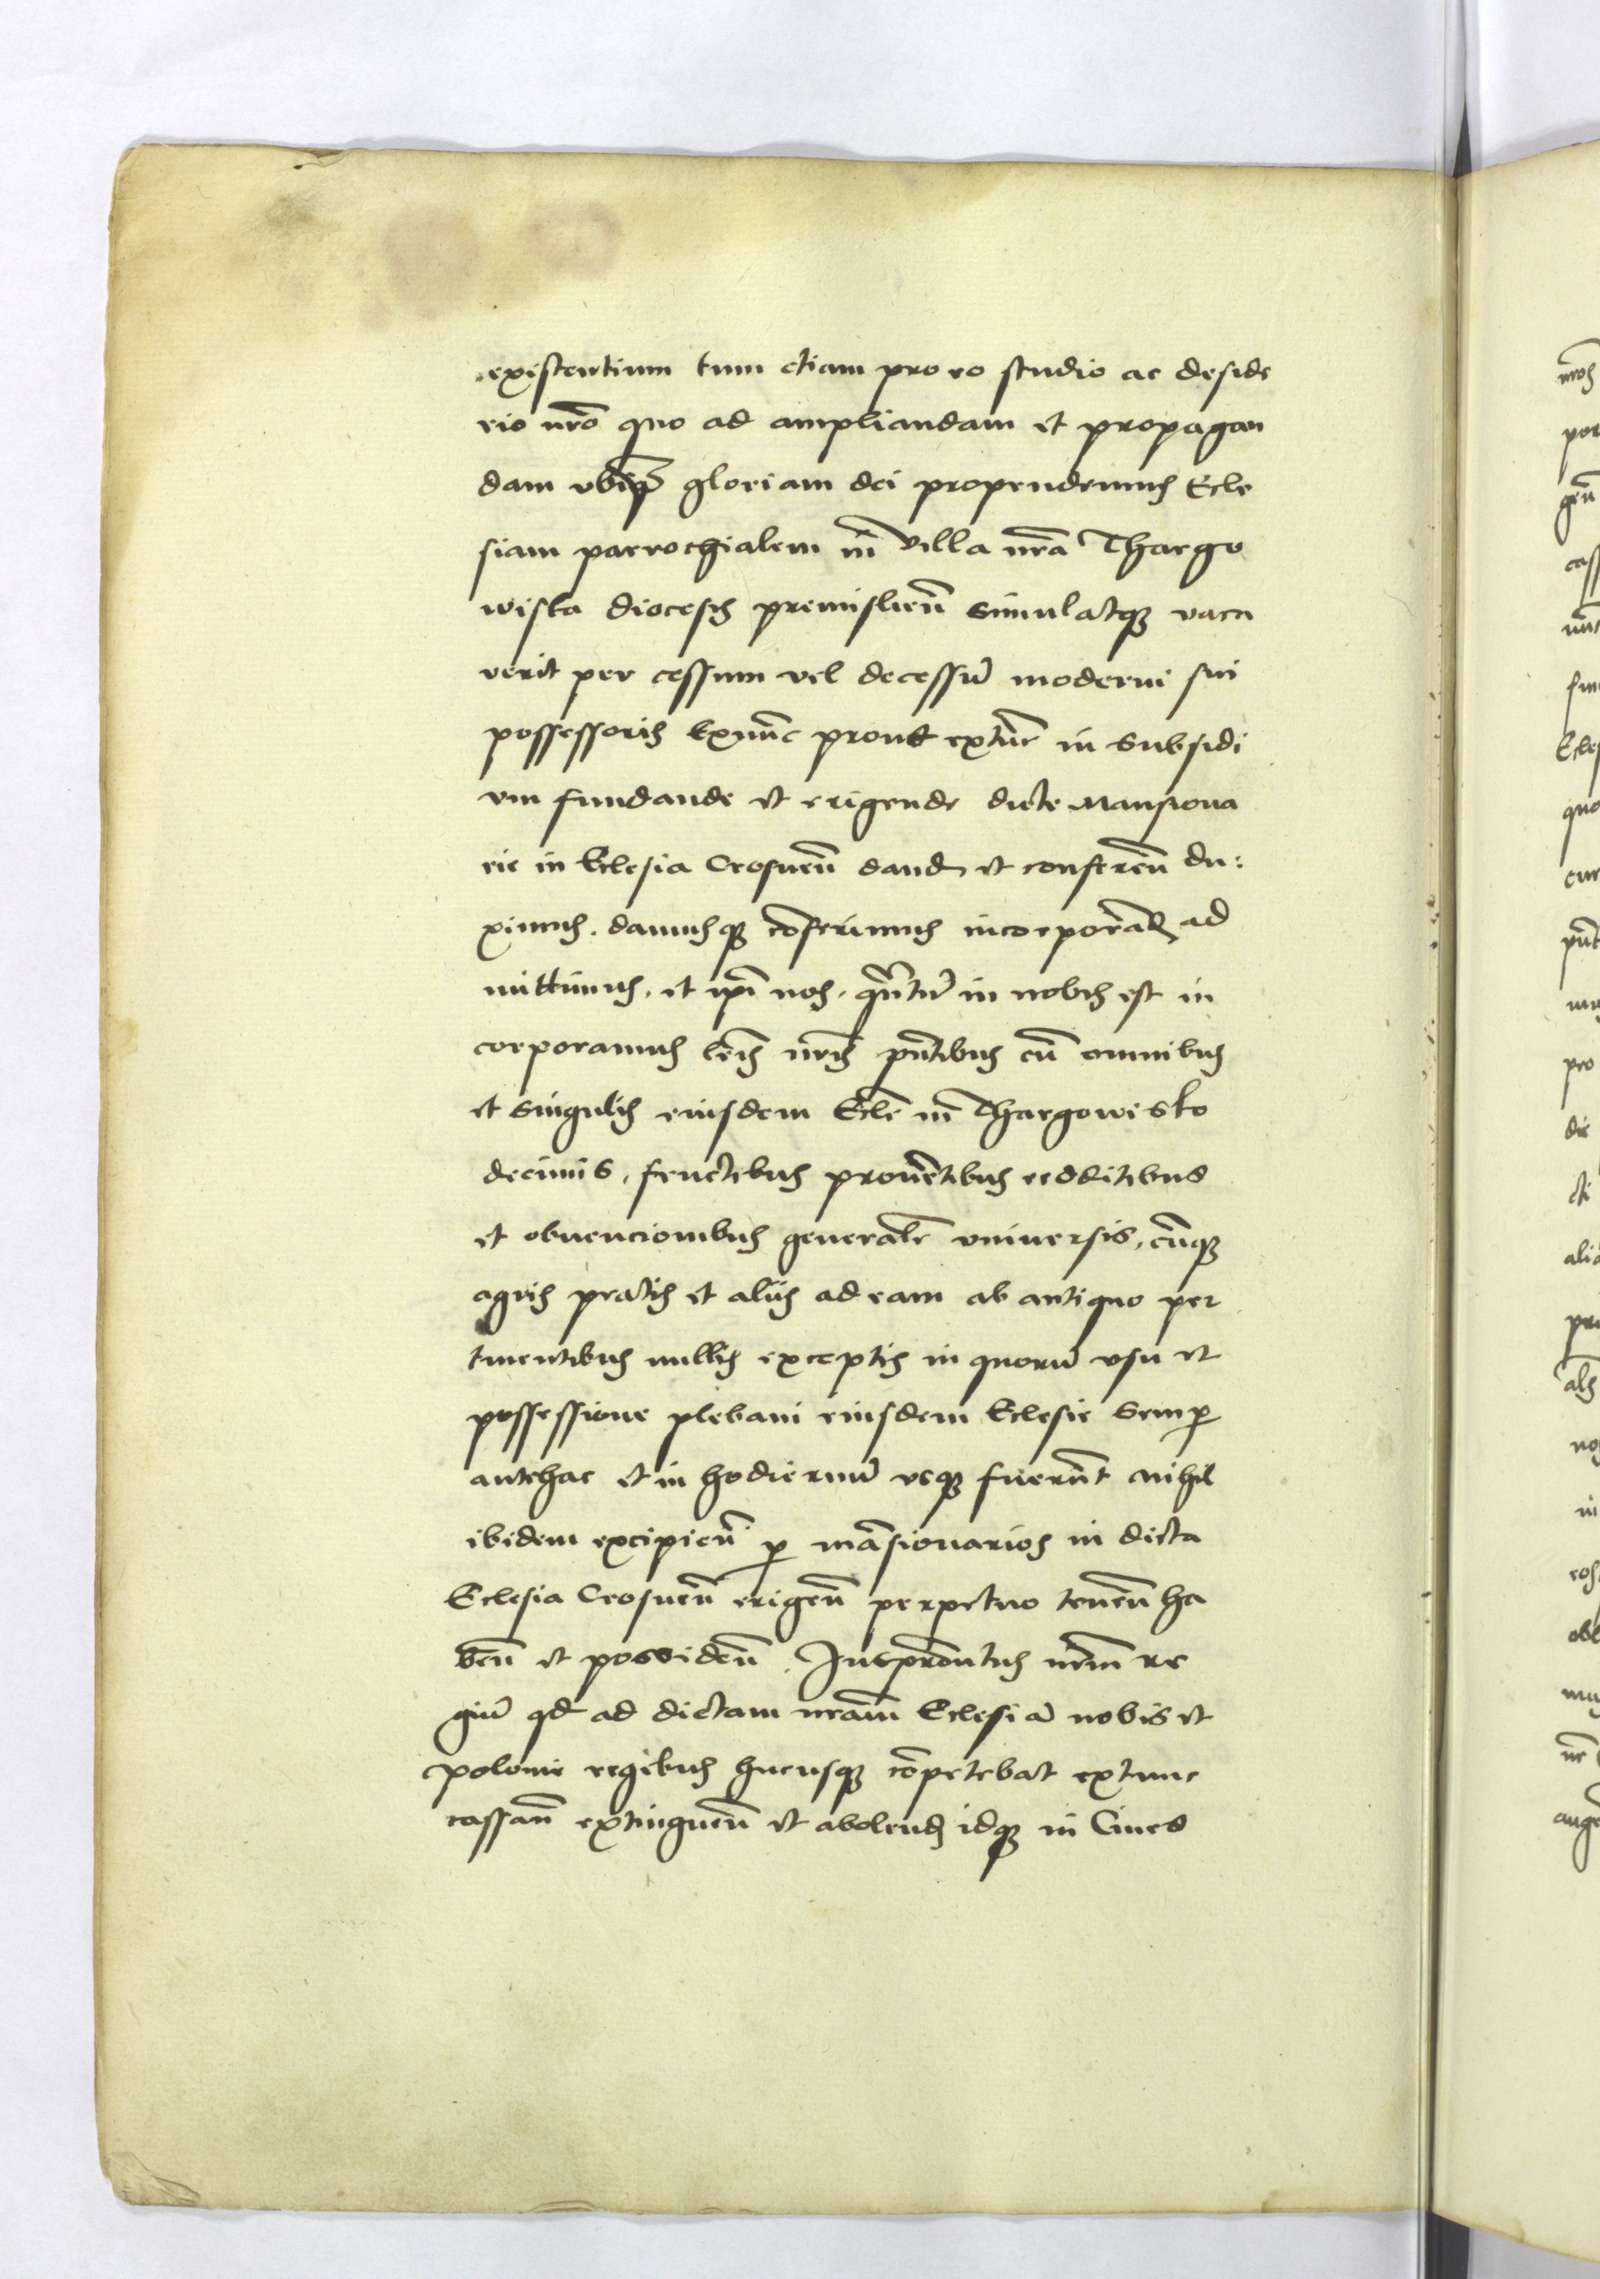 existentium tum etiam pro eo studio ac deside
rio nr̄o quo ad ampliandam et propagan
dam vbiq̄ gloriam dei propendemus Ecle
siam parrochialem in villa nr̄a Thargo
wiska diocesis premislien̄ simulatq₃ vaca
verit per cessum vel decessū moderni sui
possessoris Exnūc prout extūc in subsidi
vm fundande et erigende dicte Mansiona
rie in Eclesia Crosnen̄ dand et conferen̄ du:
ximus. damusq₃ cōferimus incorporād ad
mittimus. et ip̄i nos. qn̄tū in nobis est in
corporamus lr̄is nr̄is pn̄tibus cū omnibus
et singulis eiusdem Ecl̄e in Thargowisko
decimis, fructibus provētibus redditibus
et obuencionibus generalr̄ vniuersis, cūq₃
agris pratis et aliis ad eam ab antiquo per
tinentibus nullis exceptis in quorū vsu et
possessione plebani eiusdem Eclesie semp̱
antehac et in hodiernū vsq₃ fuerūt nihil
ibidem excipien̄ p̱ māsionarios in dicta
Eclesia Crosnen̄ erigen̄ perpetuo tenen̄ ha
ben̄ et possiden̄. Iuspr̄onatus nr̄m re
giū qd ad dictam nr̄am Eclesiā nobis et
polonie regibus hucusq₃ cōpetebat extunc
cassan̄ extinguen̄ et abolend idq₃ in Ciues